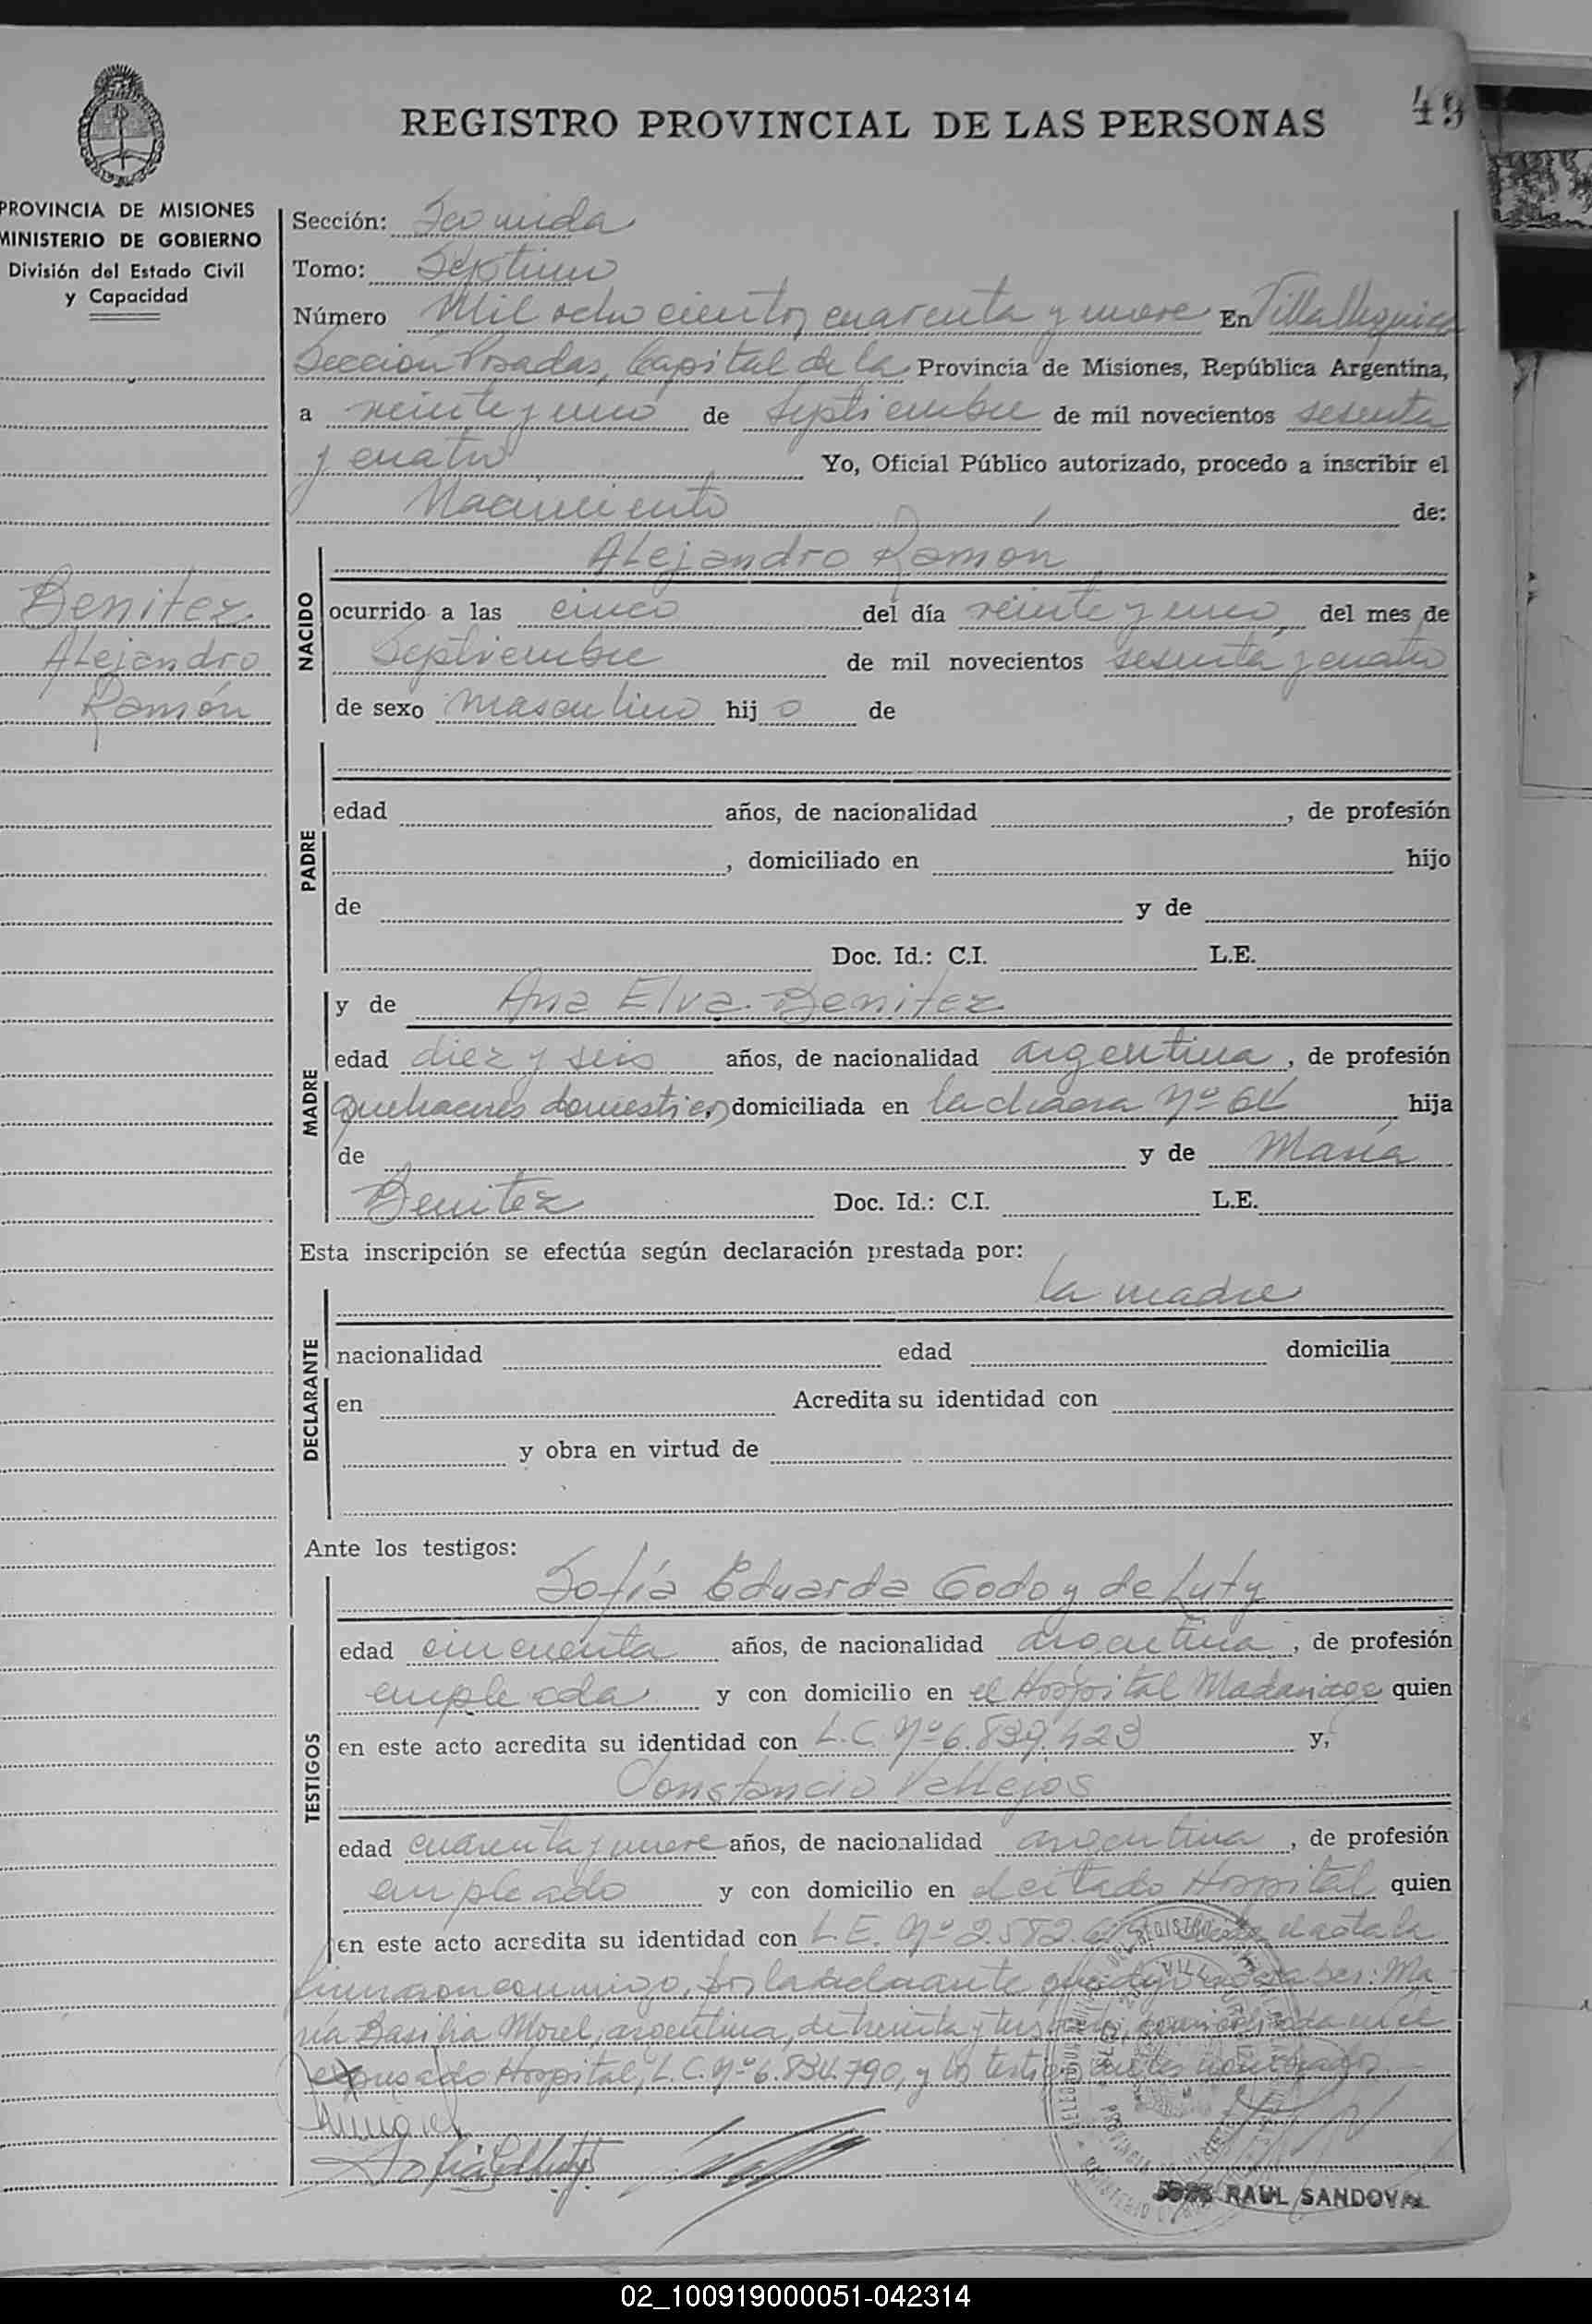 49
REGISTRO PROVINCIAL DE LAS PERSONAS
PROVINCIA DE MISIONES
MINISTERIO DE GOBIERNO
División del Estado Civil
y Capacidad
Benitez
Alejandro
Ramón
Sección:
Tomo: Séptimo
Número Mil ocho cientos cuarenta y nueve En Villa Urquiza
Sección Posadas, Capital de la Provincia de Misiones, República Argentina,
a veinte y uno de Septiembre de mil novecientos sesenta
y cuatro Yo, Oficial Público autorizado, procedo a inscribir el
Nacimiento de:
NACIDO
Alejandro Ramón
ocurrido a las cinco del día veinte y uno, del mes de
Septiembre de mil novecientos sesenta y cuatro
de sexo masculino hijo de
PADRE
edad años, de nacionalidad , de profesión
, domiciliado en hijo
de y de
Doc. Id.: C.I. L.E.
MADRE
y de Ana Elva Benitez
edad diez y seis años, de nacionalidad argentina, de profesión
quehaceres domesticos domiciliada en la chacra Nº 64 hija
de y de María
Benitez Doc. Id.: C.I. L.E.
Esta inscripción se efectúa según declaración prestada por:
DECLARANTE
la madre
nacionalidad edad domicilia
en Acredita su identidad con
y obra en virtud de
Ante los testigos:
TESTIGOS
Sofía Eduarda Godoy de Luty
edad cincuenta años, de nacionalidad argentina, de profesión
empleada y con domicilio en el Hospital Madariaga quien
en este acto acredita su identidad con L.C. Nº 6.839.423 y,
Constancio Vallejos
edad cuarenta y nueve años, de nacionalidad argentina, de profesión
empleado y con domicilio en el citado Hospital quien
en este acto acredita su identidad con L.E. Nº 2.582. Leída el acta la
firmaron conmigo, por la declarante que dijo no saber: Ma
ría Basilia Morel, argentina, de treinta y tres domiciliada en el
expresado Hospital, L.C. Nº 6.834.790, y los testigos antes nombrados
RAUL SANDOVAL
02_100919000051-042314